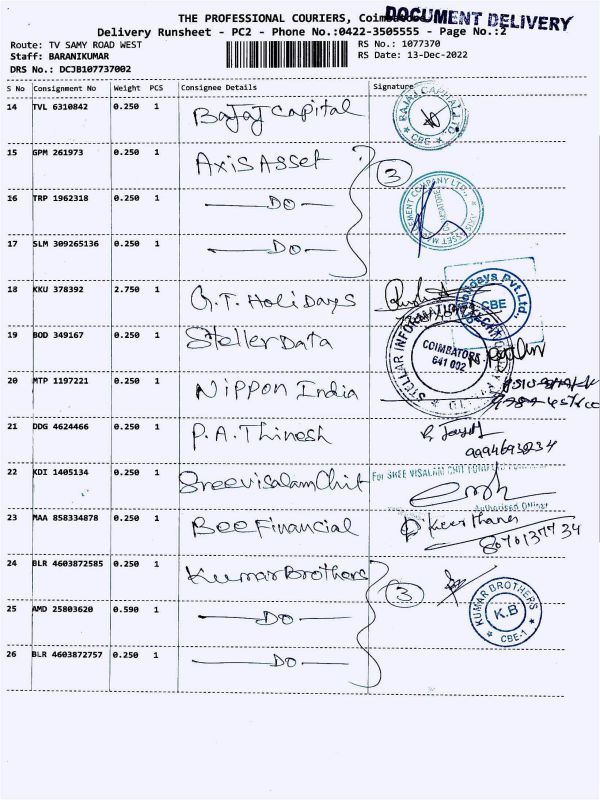 THE PROFESSIONAL COURIERS, Coimbatore
DOCUMENT DELIVERY
Delivery Runsheet - PC2 - Phone No.:0422-3505555 - Page No.:2
Route: TV SAMY ROAD WEST
RS No.: 1077370
Staff: BARANIKUMAR
RS Date: 13-Dec-2022
DRS No.: DCJB107737002
S No Consignment No Weight PCS Consignee Details Signature
14 TVL 6310842 0.250 1 Bajaj Capital
BAJAJ CAPITAL LTD * CBE *
15 GPM 261973 0.250 1 Axis Asset
3
16 TRP 1962318 0.250 1 —DO—
AXIS ASSET MANAGEMENT COMPANY LTD., COIMBATORE
17 SLM 309265136 0.250 1 —DO—
18 KKU 378392 2.750 1 G.T. Holidays
Holidays Pvt.Ltd. CBE
19 BOD 349167 0.250 1 Steller Data
STELLAR INFORMATION
COIMBATORE.
641 002
20 MTP 1197221 0.250 1 Nippon India
21 DDG 4624466 0.250 1 P.A. Thinesh
9994693834
22 KDI 1405134 0.250 1 Sree visalam Chit
For SREE VISALAM CHIT
Authorised Officer
23 MAA 858334878 0.250 1 Bee Financial
8070137734
24 BLR 4603872585 0.250 1 Kumar Brothers
3
KUMAR BROTHERS K.B * CBE-1 *
25 AMD 25803620 0.590 1 —DO—
26 BLR 4603872757 0.250 1 —DO—